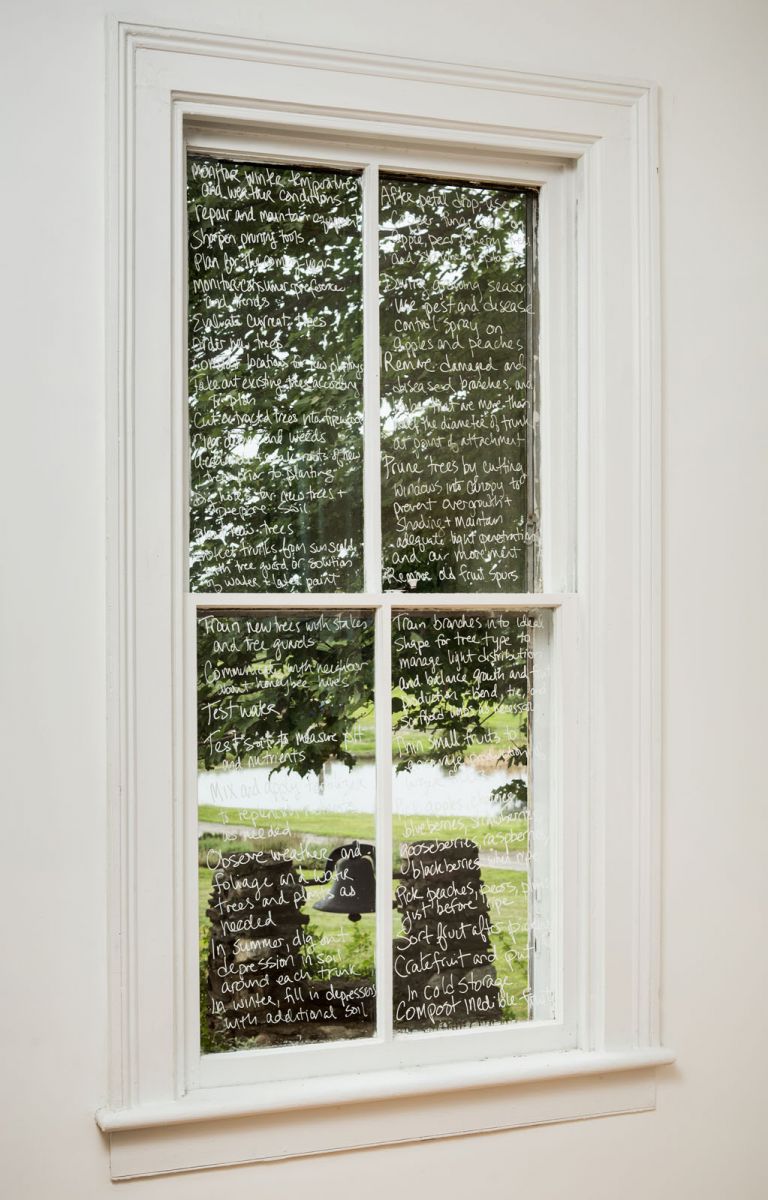 Monitor winter temperature
and weather conditions
repair and maintain equipment
Sharpen pruning tools
Plan for the coming year
Monitor consumer preference
and trends
Evaluate current trees
Order new trees
locations for new plantings
Take out existing trees according
to plan
Cut extracted trees into firewood
Clear and weeds
soak roots of new
trees prior to planting
Dig holes for new trees +
prepare soil
new trees
Protect trunks from sunscald
with tree guard or solution
of water + latex paint
Train new trees with stakes
and tree guards
Communicate with neighbor
about honeybee hives
Test water
Test soil to measure pH
and nutrients
Mix and apply fertilizer
to replenish
as needed
Observe weather and
foliage and water
trees and plants as
needed
In summer, dig out
depression in soil
around each trunk
In winter, fill in depressions
with additional soil
After petal drop, use

apple, pear, cherry
and
During growing season
use pest and disease
control spray on
apples and peaches
Remove damaged and
diseased branches, and
that are more than
half the diameter of trunk
at point of attachment
Prune trees by cutting
windows into canopy to
prevent overgrowth +
Shading + maintain
adequate light penetration
and air movement
Remove old fruit spurs
Train branches into ideal
Shape for tree type to
manage light distribution
and balance growth and fruit
production - bend, tie, and
scaffold limbs as necessary
Thin small fruits to

Pick apples, cherries
blueberries, strawberries
gooseberries, raspberries
blackberries when ripe
Pick peaches, pears, plums
just before ripe
Sort fruit after picking
Crate fruit and put
In cold storage
Compost inedible fruit